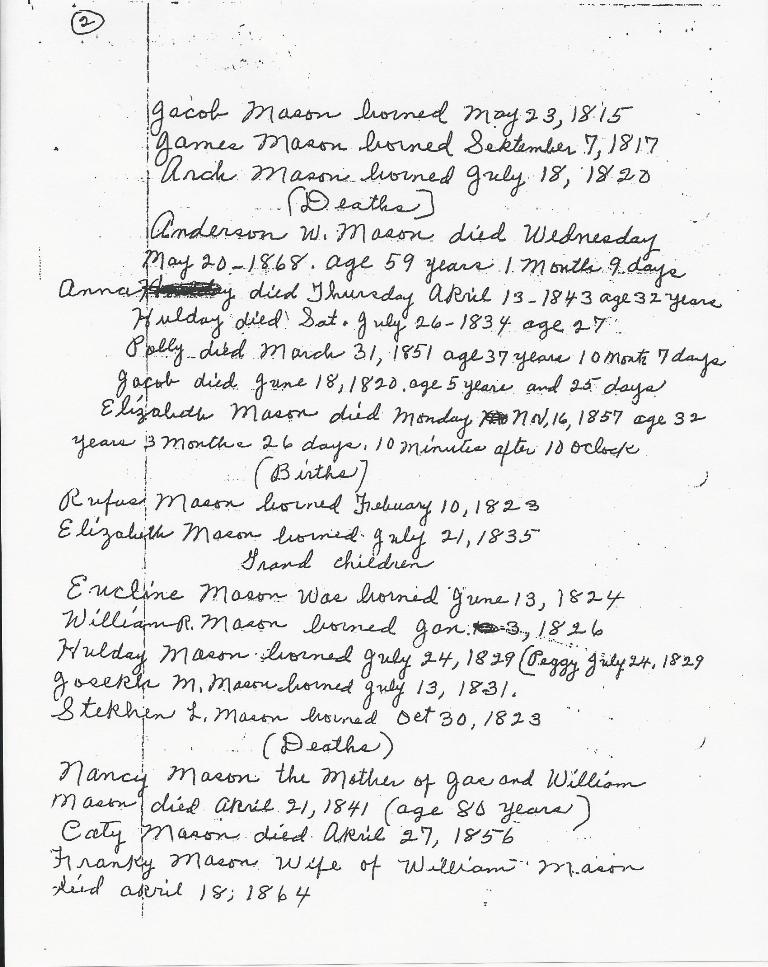 2
Jacob Mason borned May 23, 1815
James Mason borned September 7, 1817
Arch Mason borned July 18, 1820
(Deaths)
Anderson W. Mason died Wednesday
May 20-1868. age 59 years 1 Month 9 days
Anna died Thursday April 13-1843 age 32 years
Hulday died Sat. July 26-1834 age 27
Polly died March 31, 1851 age 37 years 10 month 7 days
Jacob died June 18, 1820. age 5 years and 25 days
Elizabeth Mason died Monday Nov, 16, 1857 age 32
years 3 months 26 days. 10 minutes after 10 Oclock
(Births)
Rufus Mason borned Febuary 10, 1823
Elizabeth Mason borned July 21, 1835
Grand children
Eucline Mason was borned June 13, 1824
William R. Mason borned Jan. 3, 1826
Hulday Mason borned July 24, 1829 (Peggy July 24, 1829
Joseph M. Mason borned July 13, 1831.
Stephen L. Mason borned Oct 30, 1823
(Deaths)
Nancy Mason the Mother of Jas and William
Mason died April 21, 1841 (age 80 years)
Caty Mason died April 27, 1856
Franky Mason Wife of William Mason
died april 18; 1864